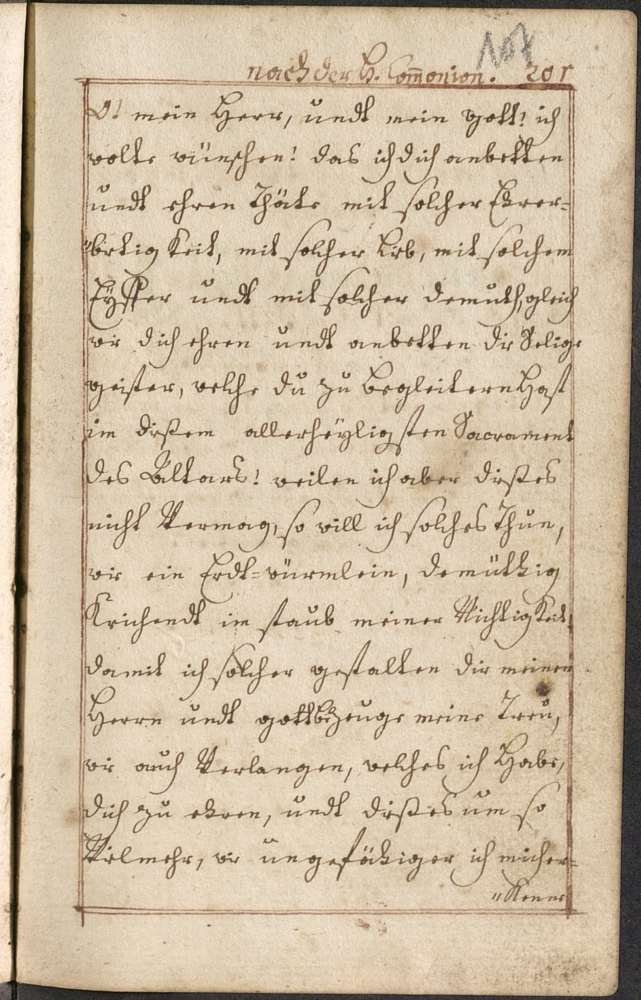 nach der H. Com̅onion. 201
O! mein Herr, undt mein gott! ich
wolte wünschen! das ich dich anbetten
undt ehren thäte mit solcher Ehrer-
bietigkeit, mit solcher Lieb, mit solchem
Eÿffer undt mit solcher demuth, gleich
wie dich ehren undt anbetten die Selige
geister, welche du zu begleiteren hast
in dießem allerheÿligsten Sacrament
des Altars! weilen ich aber dießes
nicht Vermag, so will ich solches thun,
wie ein Erdt-würmlein, demüthig
Kriechendt im staub meiner Nichtigkeit
damit ich solcher gestalten dir meinen
Herrn undt gott bezeuge meine Treü,
wie auch Verlangen, welches ich habe,
dich zu ehren, undt dießes um so
Vielmehr, wie ungefähiger ich mich er-
"Kenne